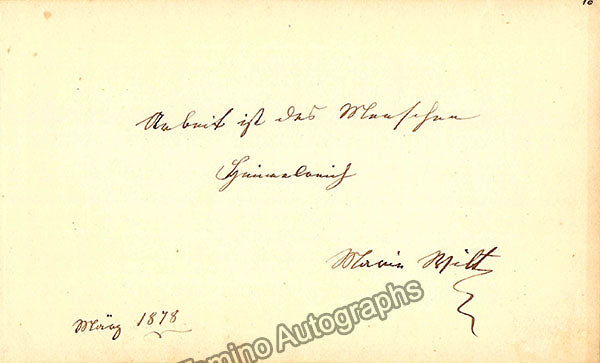 10
Arbeit ist des Menschen
Himmelreich
Marie Wilt
März 1878
Tamino Autographs